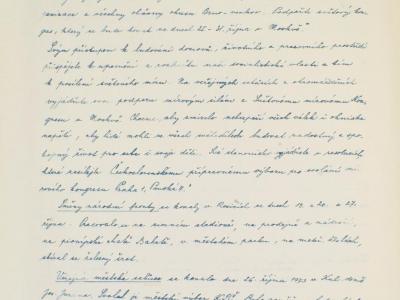 generace a všechny občany okresu Brno-venkov. Podpořit světový kon-
gres, který se bude konat ve dnech 25.-31. října v Moskvě."
Svým přístupem k budování domova, životního a pracovního prostředí
přispějete k upevnění a rozkvětu naší socialistické vlasti a tím
k posílení světového míru. Na veřejných schůzích a shromážděních
vyjádřete svou podporu mírovým silám a Světovému mírovému Kon-
gresu v Moskvě. Chceme, aby zmizelo nebezpečí všech válek a ohniska
napětí, aby lidé mohli ve všech světadílech budovat radostný a spo-
kojený život pro sebe i svoje děti. Své stanovisko vyjádřete v resolucích,
které zasílejte Československému přípravnému výboru pro svolání mí-
rového kongresu Praha 1, Panská 8."
Směny národní fronty se konaly v Rosicích ve dnech 13. a 20. a 27.
října. Pracovalo se na zimním stadioně, na prodejně a nádraží,
na pionýrské chatě Bahatá, v městském parku, na mostě
sbíral se železný šrot.
Veřejná městská schůze se konala dne 26. října 1973 v Kul.
Svolal ji městský výbor KSČ.